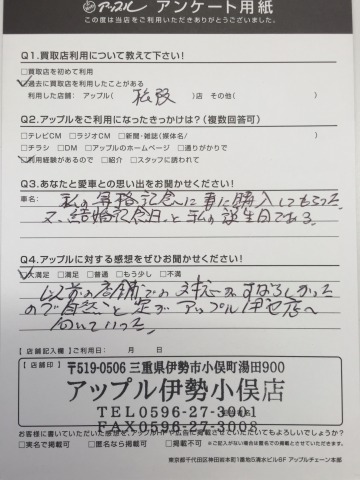 アップル アンケート用紙
この度は当店をご利用いただきありがとうございました。
Q1.買取店利用について教えて下さい!
□買取店を初めて利用
□過去に買取店を利用したことがある
利用した店舗:アップル( 松阪 )店 その他( )
Q2.アップルをご利用になったきっかけは?(複数回答可)
□テレビCM □ラジオCM □新聞・雑誌(媒体名/ )
□チラシ □DM □アップルのホームページ □通りがかりで
□利用経験があるので □紹介 □スタッフに誘われて
Q3.あなたと愛車との思い出をお聞かせください!
車名: 私の昇格記念に妻に購入してもらった
又、結婚記念日と私の誕生日である。
Q4.アップルに対する感想をぜひお聞かせください!
□大満足 □満足 □普通 □もう少し □不満
以前の店舗での対応がすばらしかった
ので自然と足がアップル伊勢店へ
向いていった。
【店舗記入欄】ご利用日: 月 日
【店舗印】
〒519-0506 三重県伊勢市小俣町湯田900
アップル伊勢小俣店
TEL0596-27-3001
FAX0596-27-3008
お客様に書いていただいた感想を、アップルHPや広告に掲載させていただいてもよろしいでしょうか?
□実名で掲載可 □匿名なら掲載可 □掲載不可 ※ご記入がない場合は匿名での掲載とさせていただきます。
東京都千代田区神田岩本町1番地5清水ビル6F アップルチェーン本部